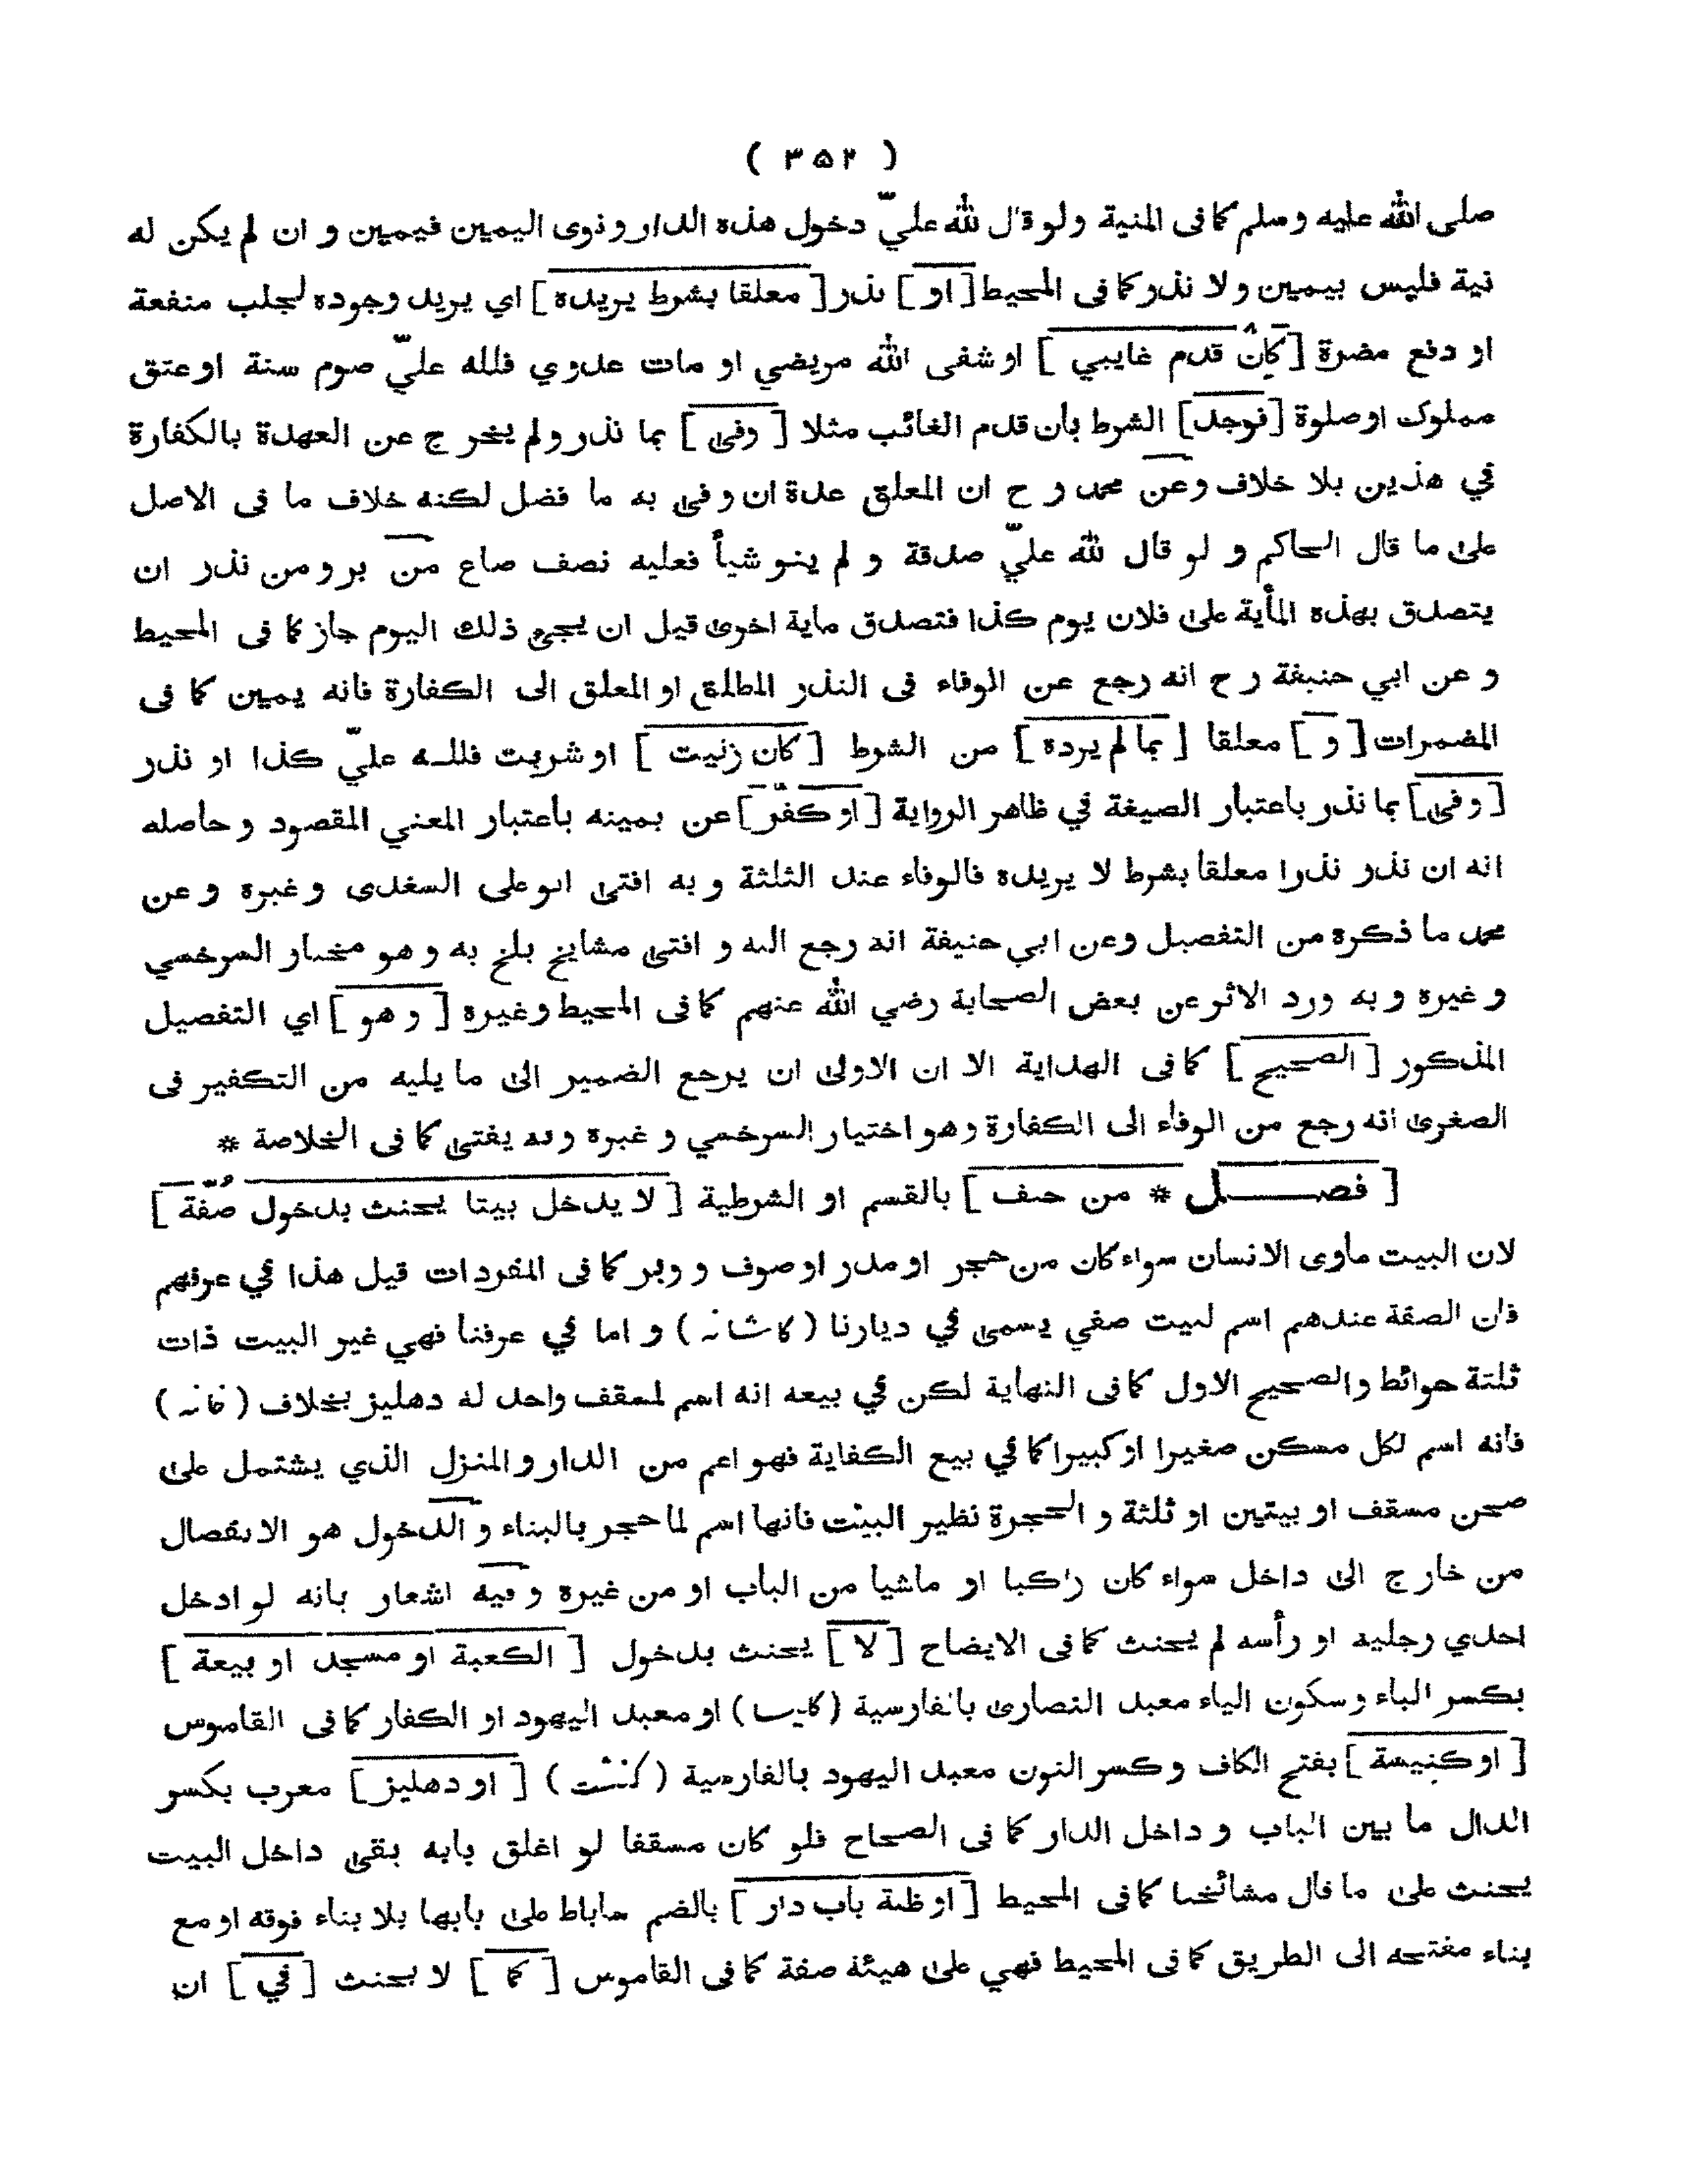 ( ٣٥٢ )
صلى الله عليه وسلم كما فى المنية ولو قال لله عليّ دخول هذه الدار ونوى اليمين فيمين و ان لم يكن له
نية فليس بيمين ولا نذر كما فى المحيط [ او ] نذر [ معلقا بشرط يريده ] اي يريد وجوده لجلب منفعة
او دفع مضرة [ كان قدم غايبي ] او شفى الله مريضي او مات عدوي فلله عليّ صوم سنة او عتق
مملوك او صلوة [ فوجد ] الشرط بأن قدم الغائب مثلا [ وفى ] بما نذر ولم يخرج عن العهدة بالكفارة
في هذين بلا خلاف وعن محمد ر ح ان المعلق عدة ان وفى به ما فضل لكنه خلاف ما فى الاصل
على ما قال الحاكم و لو قال لله عليّ صدقة و لم ينو شيأ فعليه نصف صاع من بر ومن نذر ان
يتصدق بهذه المأية على فلان يوم كذا فتصدق ماية اخرى قيل ان يجئ ذلك اليوم جاز كما فى المحيط
و عن ابي حنيفة ر ح انه رجع عن الوفاء فى النذر المطلق او المعلق الى الكفارة فانه يمين كما فى
المضمرات [ و ] معلقا [ بما لم يرده ] من الشرط [ كان زنيت ] او شربت فللـه عليّ كذا او نذر
[ وفى ] بما نذر باعتبار الصيغة في ظاهر الرواية [ او كفّر ] عن يمينه باعتبار المعني المقصود و حاصله
انه ان نذر نذرا معلقا بشرط لا يريده فالوفاء عند الثلثة و به افتى ابو على السغدى و غيره و عن
محمد ما ذكره من التفصيل وعن ابي حنيفة انه رجع اليه و افتى مشايخ بلخ به و هو مختار السرخسي
و غيره و به ورد الاثر عن بعض الصحابة رضي الله عنهم كما فى المحيط وغيره [ و هو ] اي التفصيل
المذكور [ الصحيح ] كما فى الهداية الا ان الاولى ان يرجع الضمير الى ما يليه من التكفير فى
الصغرى انه رجع من الوفاء الى الكفارة وهو اختيار السرخسي و غيره وبه يفتى كما فى الخلاصة *
[ فصـــل * من حلف ] بالقسم او الشرطية [ لا يدخل بيتا يحنث بدخول صُفّة ]
لان البيت مأوى الانسان سواء كان من حجر او مدر او صوف و وبر كما فى المفردات قيل هذا في عرفهم
فان الصفة عندهم اسم لبيت صفي يسمى في ديارنا ( كاشانه ) و اما في عرفنا فهي غير البيت ذات
ثلثة حوائط والصحيح الاول كما فى النهاية لكن في بيعه انه اسم لمسقف واحد له دهليز بخلاف ( خانه )
فأنه اسم لكل مسكن صغيرا او كبيرا كما في بيع الكفاية فهو اعم من الدار و المنزل الذي يشتمل على
صحن مسقف او بيتين او ثلثة و الحجرة نظير البيت فأنها اسم لما حجر بالبناء و الدخول هو الانفصال
من خارج الى داخل سواء كان راكبا او ماشيا من الباب او من غيره و فيه اشعار بانه لو ادخل
احدي رجليه او رأسه لم يحنث كما فى الايضاح [ لا ] يحنث بدخول [ الكعبة او مسجد او بيعة ]
بكسر الباء و سكون الياء معبد النصارى بالفارسية ( كليسا ) او معبد اليهود او الكفار كما فى القاموس
[ او كنيسة ] بفتح الكاف و كسر النون معبد اليهود بالفارسية ( كنشت ) [ او دهليز ] معرب بكسر
الدال ما بين الباب و داخل الدار كما فى الصحاح فلو كان مسقفا لو اغلق بابه بقى داخل البيت
يحنث على ما قال مشائخنا كما فى المحيط [ او ظلة باب دار ] بالضم ساباط على بابها بلا بناء فوقه او مع
بناء مفتحه الى الطريق كما فى المحيط فهي على هيئة صفة كما فى القاموس [ كما ] لا يحنث [ في ] ان